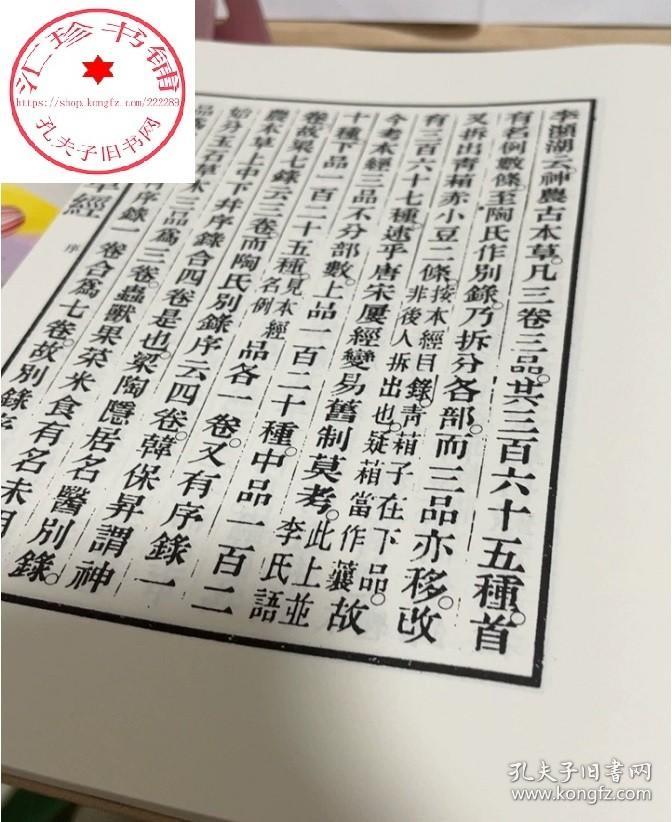 汇珍书铺
https://shop.kongfz.com/222289
孔夫子旧书网
李瀕湖云神農古本草凡三卷三品共三百六十五種首
有名例數條至陶氏作別錄乃拆分各部而三品亦移改
又拆出青葙赤小豆二條按本經目錄青葙子在下品
非後人拆出也疑葙當作蘘故
有三百六十七種逮乎唐宋屢經變易舊制莫考此上並
李氏語
今考本經三品不分部數上品一百二十種中品一百二
十種下品一百二十五種見本經
名例
品各一卷又有序錄一
卷故梁七錄云三卷而陶氏別錄序云四卷韓保昇謂神
農本草上中下幷序錄合四卷是也梁陶隱居名醫別錄
始分玉石草木三品為三卷蟲獸果菜米食有名未用
序錄一卷合為七卷故別錄序
經
序
孔夫子旧书网
www.kongfz.com